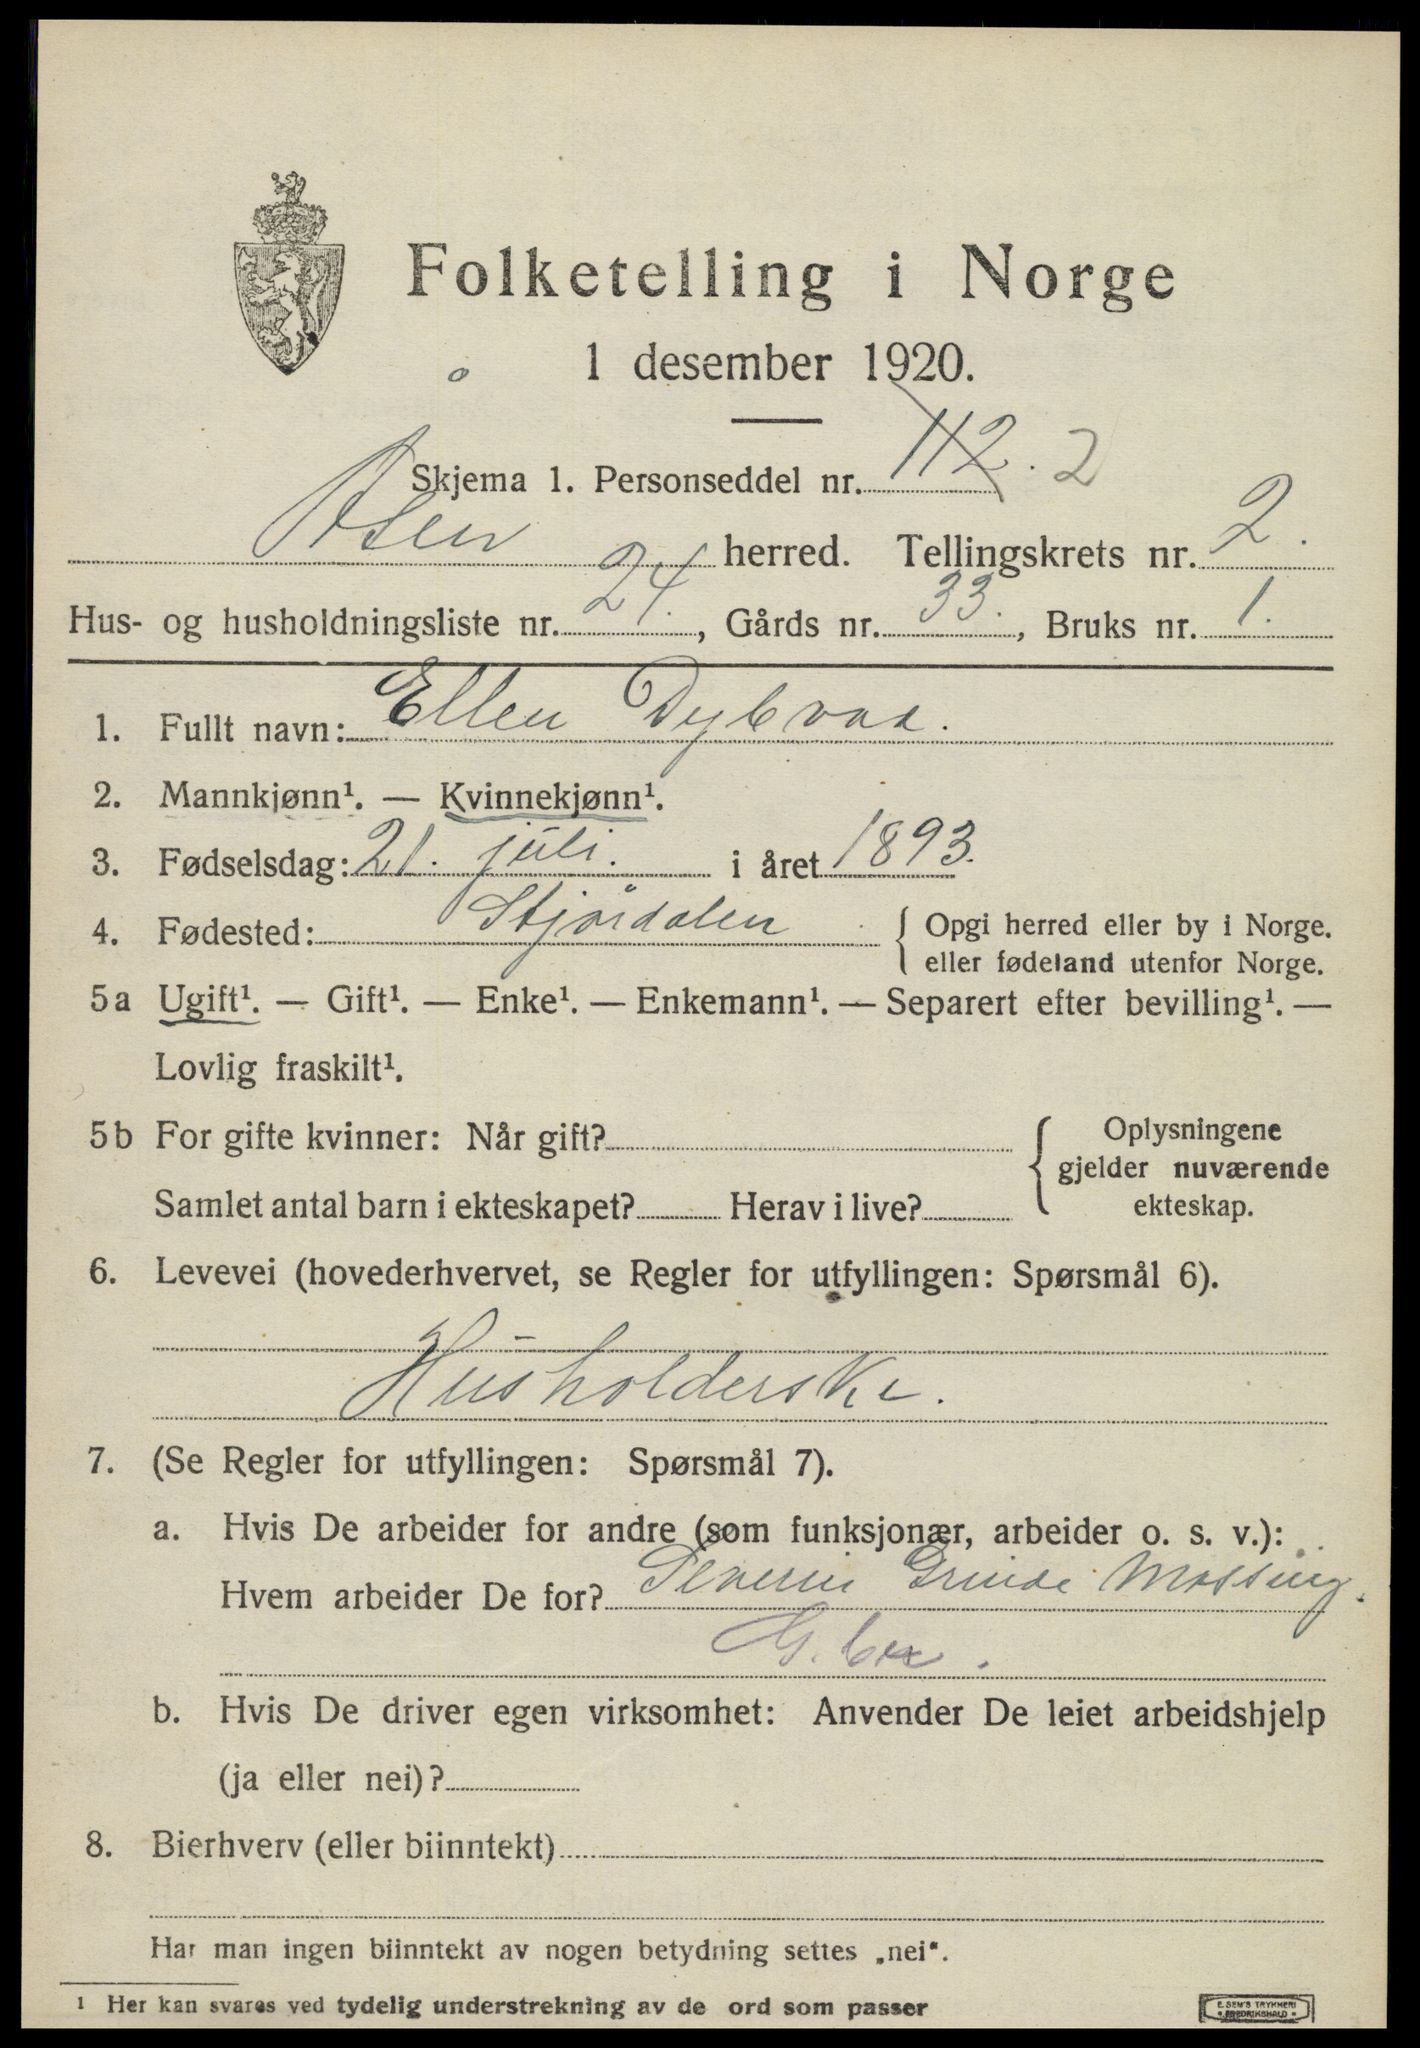 Folketelling i Norge
1 desember 1920.
Skjema 1. Personseddel nr. 112. 2
Åsen herred. Tellingskrets nr. 2.
Hus- og husholdningsliste nr. 24., Gårds nr. 33., Bruks nr. 1.
1. Fullt navn: Ellen Dybvad.
2. Mannkjønn¹. — Kvinnekjønn¹.
3. Fødselsdag: 21. juli. i året 1893.
4. Fødested: Stjørdalen { Opgi herred eller by i Norge.
eller fødeland utenfor Norge.
5a Ugift¹. — Gift¹. — Enke¹. — Enkemann¹. — Separert efter bevilling¹. —
Lovlig fraskilt¹.
5b For gifte kvinner: Når gift?
Samlet antal barn i ekteskapet? Herav i live?
{ Oplysningene
gjelder nuværende
ekteskap.
6. Levevei (hovederhvervet, se Regler for utfyllingen: Spørsmål 6).
Husholderske.
7. (Se Regler for utfyllingen: Spørsmål 7).
a. Hvis De arbeider for andre (som funksjonær, arbeider o. s. v.):
Hvem arbeider De for? Severin Grinde Mossing.
b. Hvis De driver egen virksomhet: Anvender De leiet arbeidshjelp
(ja eller nei)?
8. Bierhverv (eller biinntekt)
Har man ingen biinntekt av nogen betydning settes „nei“.
¹ Her kan svares ved tydelig understrekning av de ord som passer
E. SEM'S TRYKKERI
• FREDRIKSHALD •